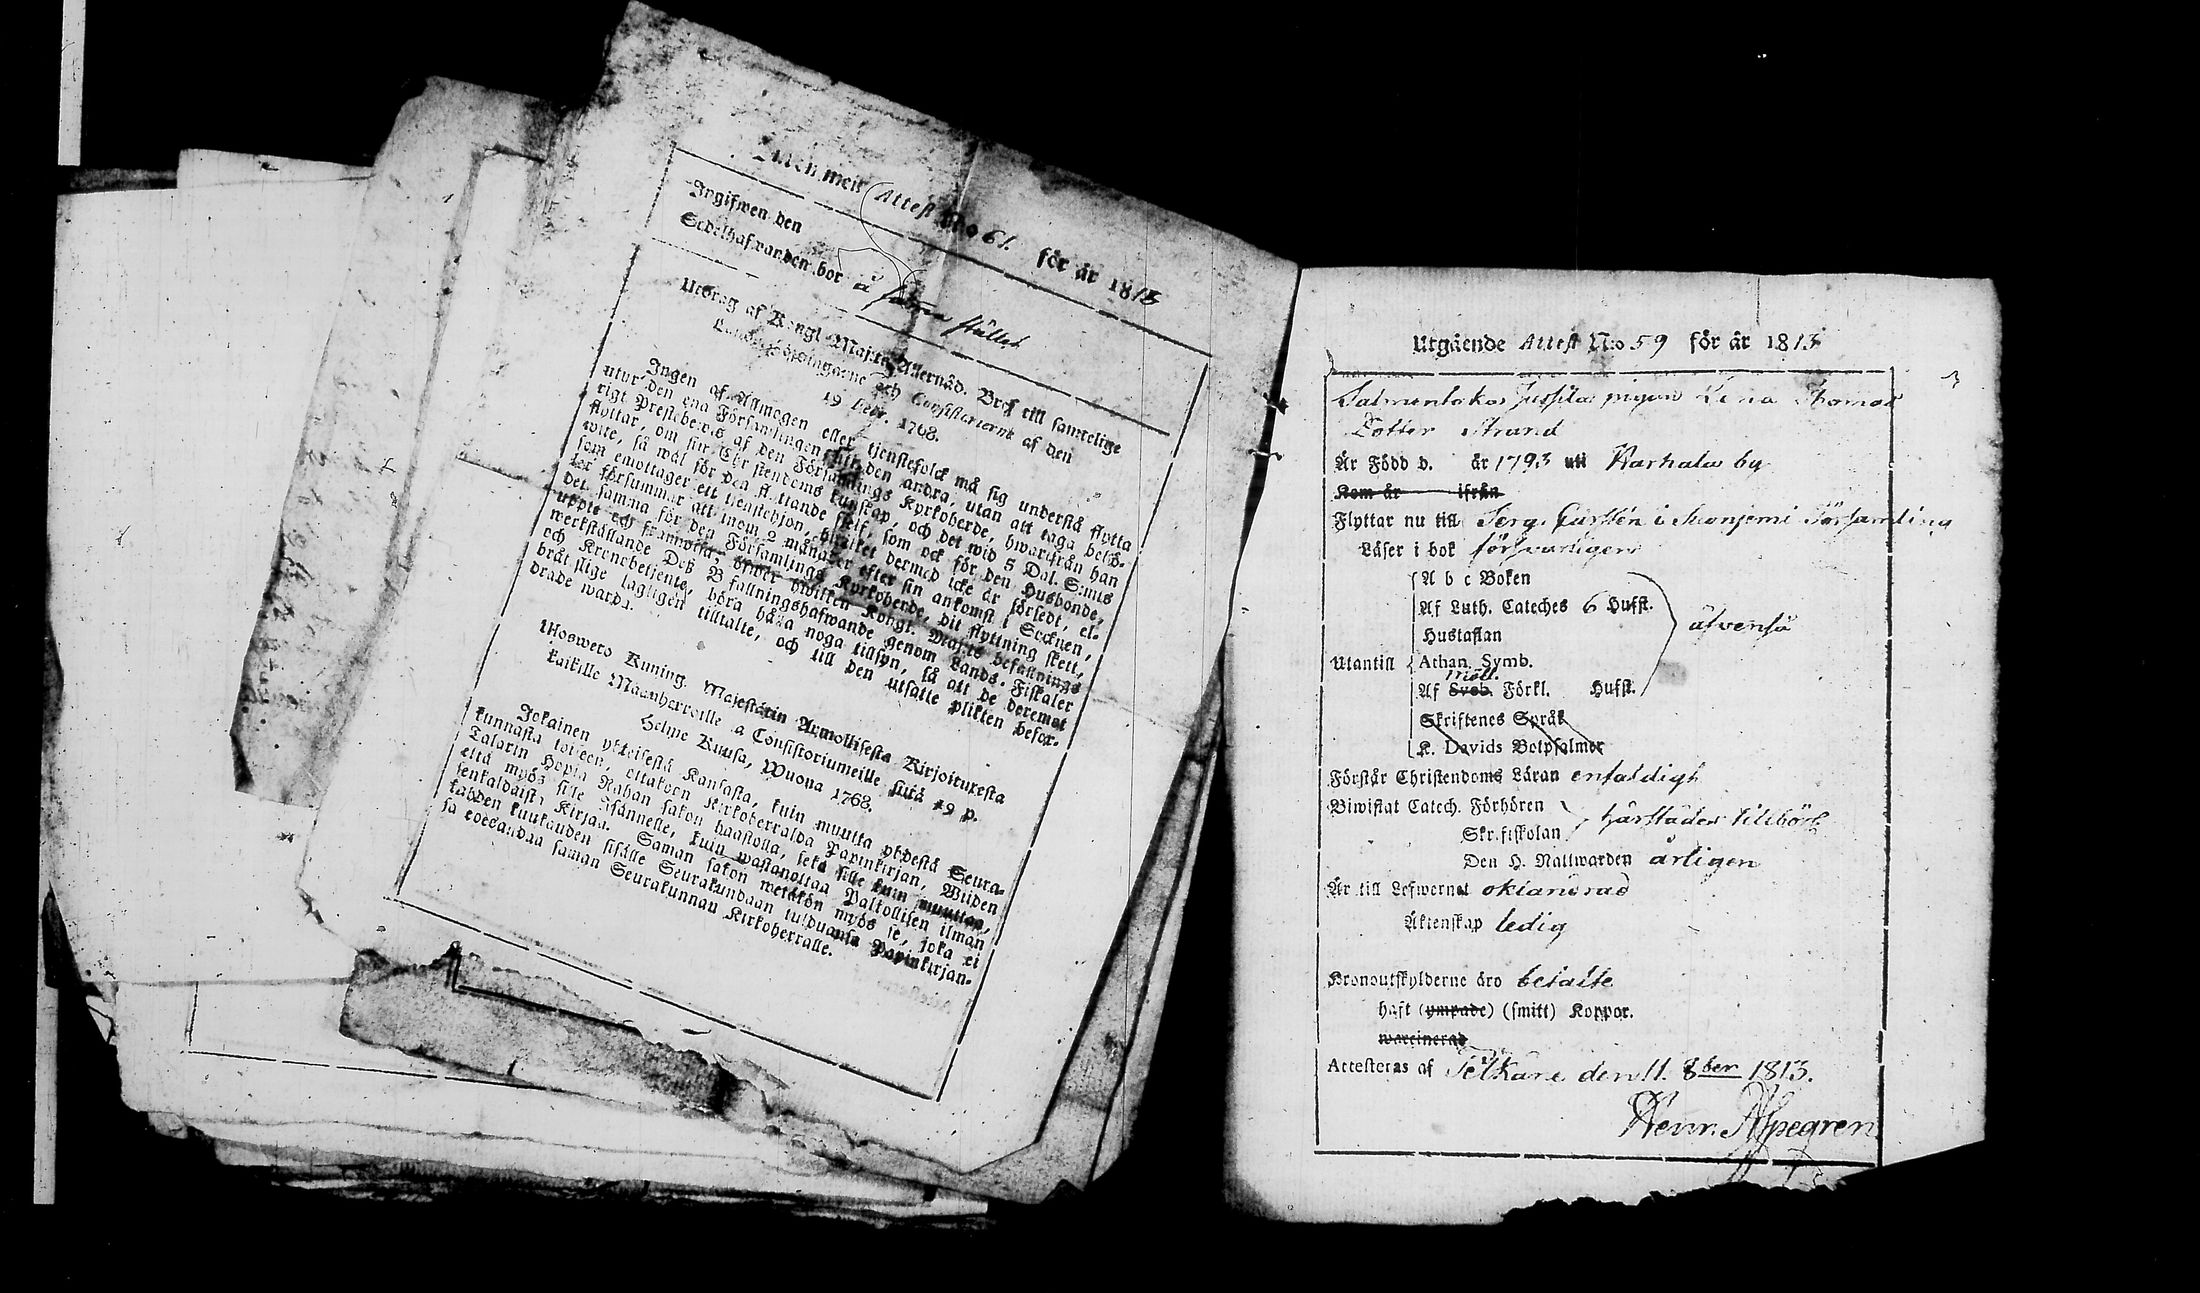 Inkommen Attest N:o 61. för år 1813
Ingifwen den
Sedelhafwanden bor å samma stället
Utdrag af Kongl. Maj:ts Allernåd. Bref till samtelige
Landshöfdingarne och Consistorierne af den
19 1768.
Ingen af Allmogen eller tjenstefolck må sig understå flytta
utur den ena Församlingen till den andra, utan att taga behö-
rigt Prestebewis af den Församlings Kyrkoherde, hwarifrån han
flyttar, om sin Christendoms kunskap, och det wid 5 Dal. S:mts
wite, så wäl för den flyttande sjelf, som ock för den Husbonde,
som emottager ett tjenstehjon, hwilket dermed icke är försedt, el-
ler försummar att inom 2 månader efter sin ankomst i Socknen,
det samma för den Församlings Kyrkoherde, dit flyttning skett,
uppte och framwisa; öfwer hwilken Kongl. Maj:ts befallnings
werkställande Deß Befallningshafwande genom Lands-Fiskaler
och Kronobetjente, böra hafwa noga tillsyn, så att de deremot
bråtslige lagligen tilltalte, och till den utsatte plikten befor-
drade warda.
Uloswero Kuning. Majestätin Armollisesta Kirjoituxesta
kaikille Maanherroille ja Consistoriumeille siitä 19 p.
Helme Kuusa, Wuona 1768.
Jokainen yhteisestä Kansasta, kuin muutta yhdestä Seura-
kunnasta toiseen, ottakoon Kirkoherralda Papinkirjan, Wiiden
Talarin Hopia Rahan sakon haastolla, sekä sille kuin muuttaa,
että myös sille Isännelle, kuin wastanottaa Palkollisen ilman
senkaldaista Kirjaa. Saman sakon wetäkön myös se, joka ei
kahden kuukauden sisälle Seurakundaan tulduansa Papinkirjan-
sa edesandaa saman Seurakunnan Kirkoherralle.
Utgående Attest N:o 59 för år 1813
pigan Lena Thomas
Dotter Strand
Är Född d. år 1793 uti Karhala by
Kom år ifrån
Flyttar nu till Serg. i Församling
Läser i bok försvarligen
A b c Boken
Af Luth. Cateches 6 Hufst.
Hustaflan
äfvenså
Utantill
Athan. Symb.
Möll.
Af Sveb. Förkl. Hufst.
Skriftenes Språk
K. Davids Botpsalmer
Förstår Christendoms Läran enfaldigt
Biwistat Catech. Förhören
Skriftskolan
härstädes tillbörl.
Den H. Nattwarden årligen
Är till Lefwernet oklandrad
Äktenskap ledig
Kronoutskylderne äro betalte
haft (ympade) (smitt) Koppor.
waccinerad
Attesteras af Sälkäne den 11. 8ber 1813.
Henr. Alpegren